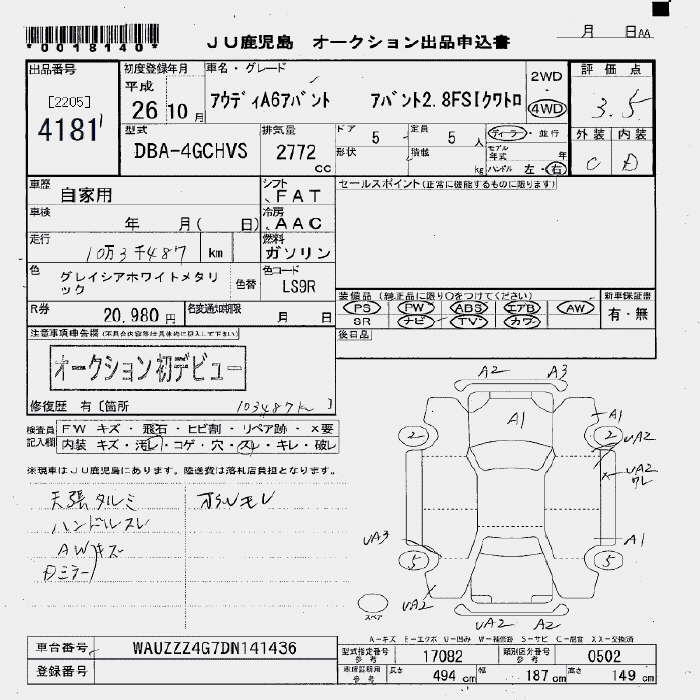 *0018140*
JU鹿児島 オークション出品申込書
月 日AA
出品番号
[2205]
4181
初度登録年月
平成
26 10月
車名・グレード
アウディA6アバント アバント2.8FSIクワトロ
2WD
4WD
評価点
3.5
外装 内装
C D
型式
DBA-4GCHVS
排気量
2772
cc
ドア 5
定員 5 人
形状
積載 kg
ディーラー・並行
モデル年式 年
ハンドル 左・右
車歴
自家用
シフト
FAT
車検
年 月( 日)
冷房
AAC
走行
10万3千487 km
燃料
ガソリン
色
グレイシアホワイトメタリ
ック
色替
色コード
LS9R
R券
20,980円
名変通知期限
月 日
セールスポイント(正常に機能するものに限ります)
装備品(純正品に限り○をつけてください)
PS PW ABS エアB AW
SR ナビ TV カワ
新車保証書
有・無
後日品
注意事項車告欄(不具合内容等は具体的に記入して下さい)
オークション初デビュー
修復歴 有[箇所 ]
103487k
検査員
記入欄
FW キズ・飛石・ヒビ割・リペア跡・×要
内装 キズ・汚レ・コゲ・穴・スレ・キレ・破レ
※現車はJU鹿児島にあります。陸送費は落札店負担となります。
天張タルミ
ハンドルスレ
AWキズ
Dミラー
A2 A3
A1
A1
2 2
UA2
UA2
ワレ
UA3
A1
5 5
UA2
UA2 A2
スペア
A-キズ E-エクボ U-凹み W-補修跡 S-サビ C-腐食 XX-交換済
車台番号
WAUZZZ4G7DN141436
登録番号
型式指定番号
参考
17082
類別区分番号
参考
0502
車検証期用
参考
長さ 494 cm
幅 187 cm
高さ 149 cm